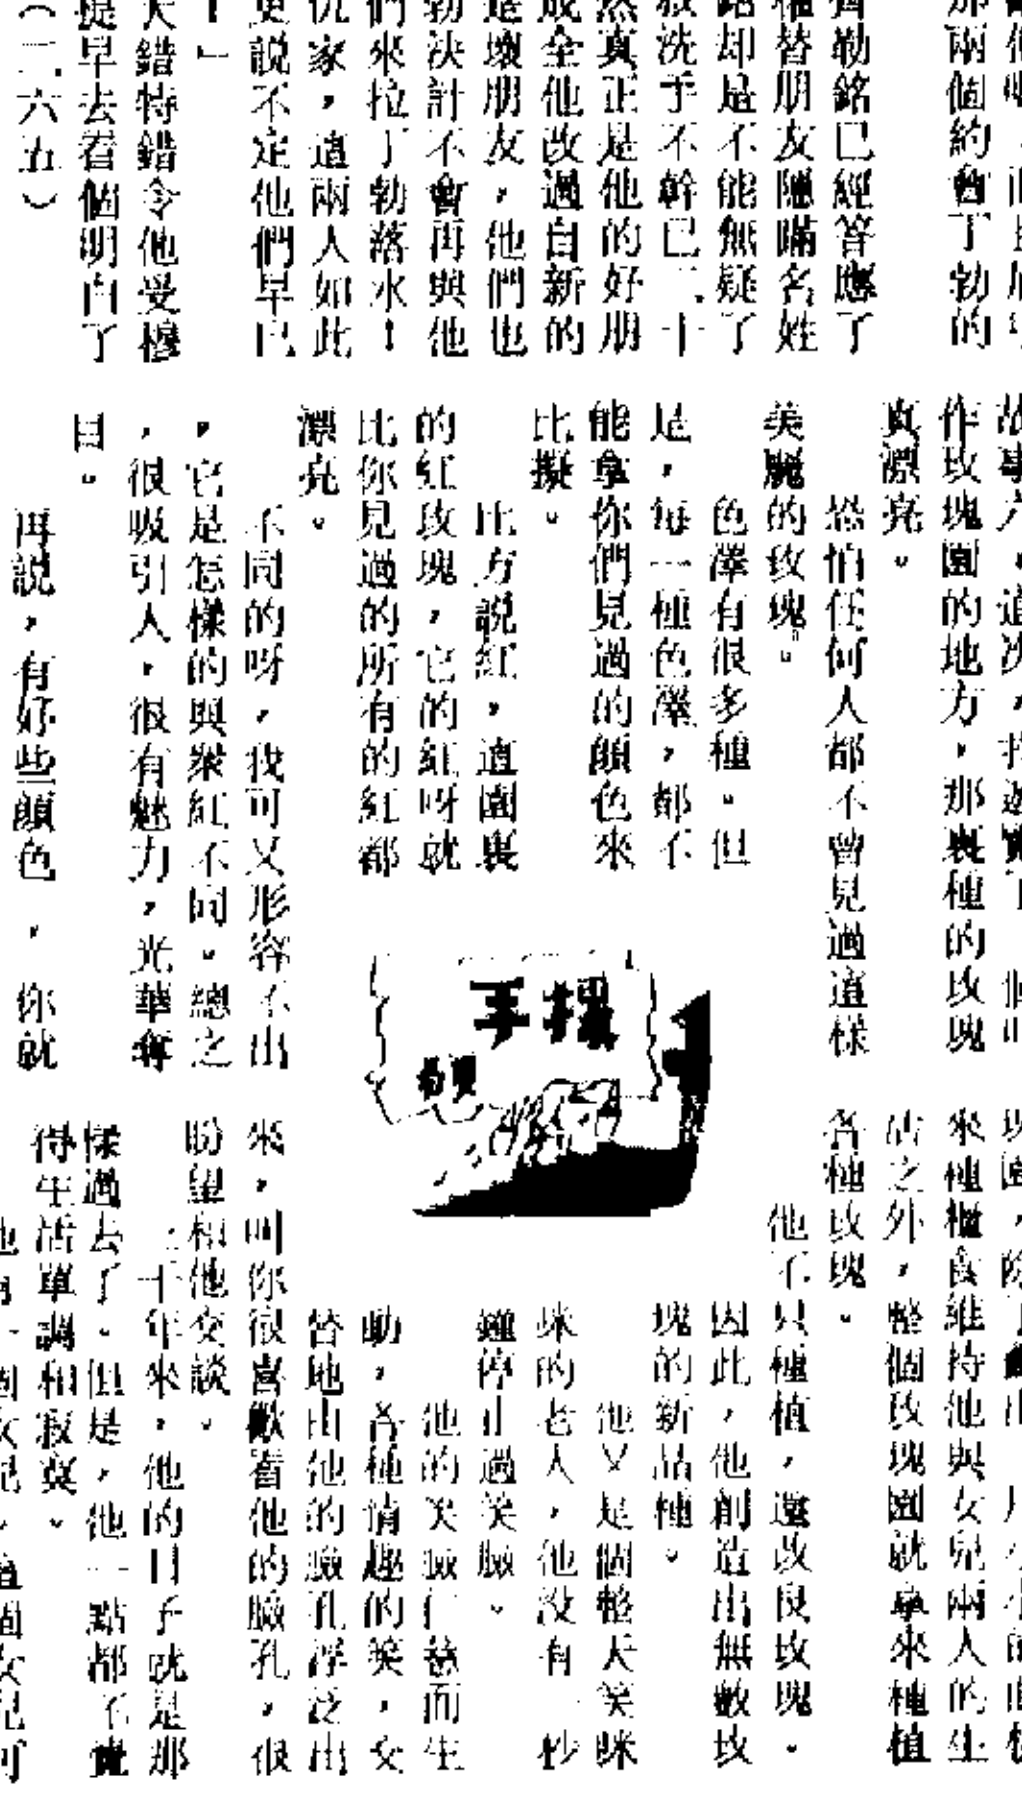 那兩個約會丁勃的
齊勒銘已經答應了
替朋友隱瞞名姓
銘却是不能無疑了
洗手不幹已二十
然真正是他的好朋
成全他改過自新的
壞朋友，他們也
勃決計不會再與他
們來拉丁勃落水！
仇家，這兩人如此
更説不定他們早已
！」
大錯特錯令他受慘
提早去看個明白了
（二六五）
作玫塊園的地方，那裏種的玫塊
真漂亮。
恐怕任何人都不曾見過這樣
美麗的玫塊。
色澤有很多種。但
是，每一種色澤，都不
能拿你們見過的顔色來
比擬。
比方説紅，這園裏
的紅玫塊，它的紅呀就
比你見過的所有的紅都
漂亮。
不同的呀，我可又形容不出
，它是怎樣的與衆紅不同。總之
，很吸引人，很有魅力，光華奪
目。
再説，有好些顔色，你就
來種糧食維持他與女兒兩人的生
活之外，整個玫塊園就拿來種植
各種玫塊。
他不只種植，還改良玫塊。
因此，他創造出無數玫
塊的新品種。
他又是個整天笑眯
眯的老人，他没有一秒
鐘停止過笑臉。
他的笑臉仁慈而生
動，各種情趣的笑，交
替地由他的臉孔浮泛出
來，叫你很喜歡看他的臉孔，很
盼望和他交談。
二十年來，他的日子就是那
樣過去了。但是，他一點都不覺
得生活單調和寂寞。